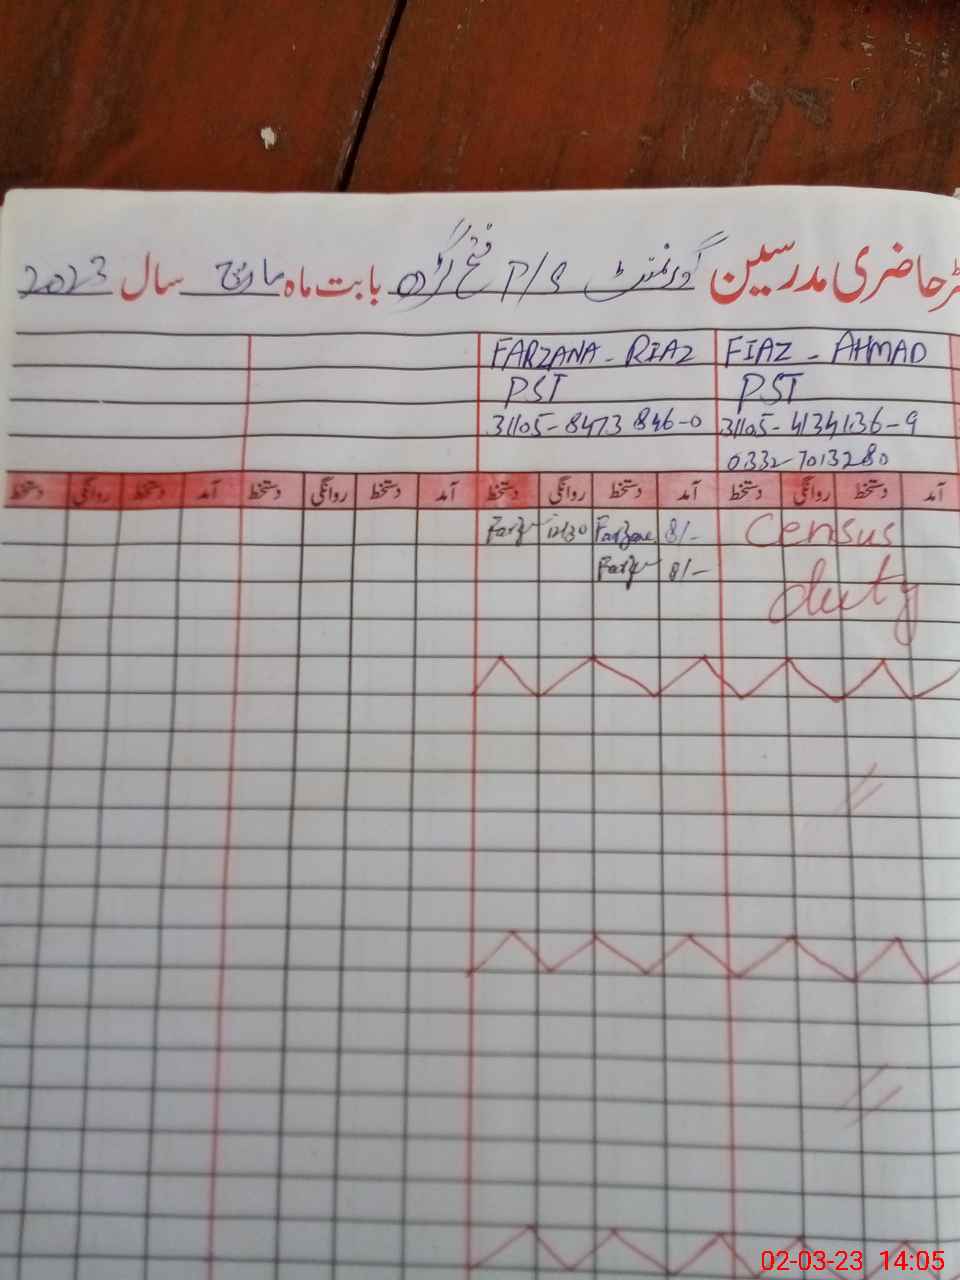 ٹر حاضری مدرسین گورنمنٹ P/S فتح گڑھ بابت ماہ مارچ سال 2023
FIAZ - AHMAD FARZANA - RIAZ
PST PST
31105-4134136-9 31105-8473846-0
0332-7013280
آمد دستخط روانگی دستخط آمد دستخط روانگی دستخط آمد دستخط روانگی دستخط آمد دستخط روانگی دستخط
Census 8/- Farzana 12/30
duty 8/-
02-03-23 14:05